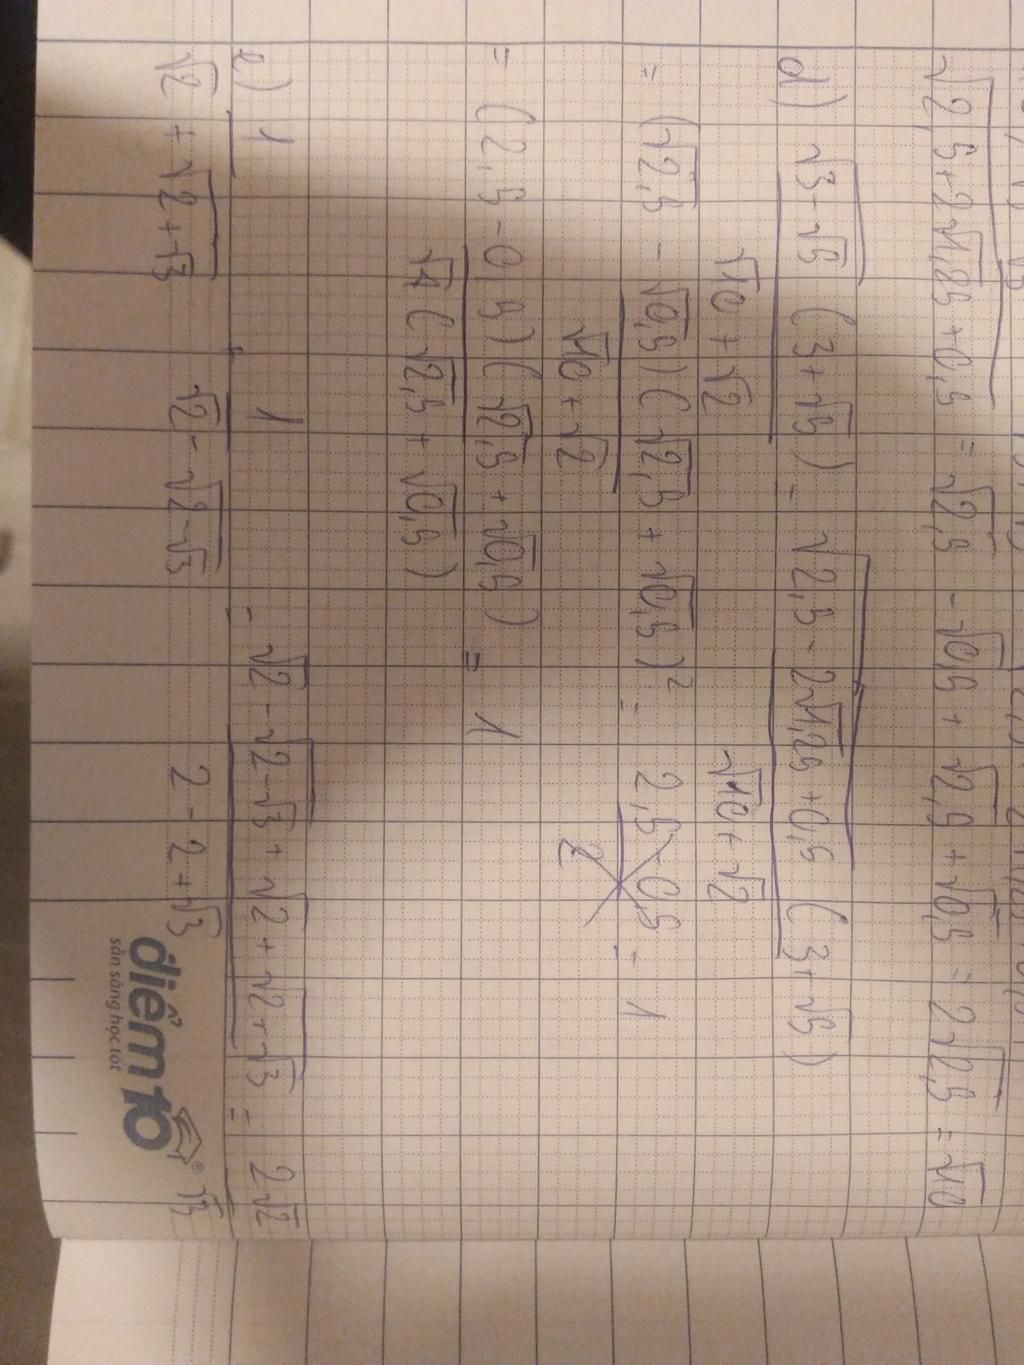 √2,5+2√1,25+0,5 = √2,5 - √0,5 + √2,5 + √0,5 = 2√2,5 = √10
d) √3-√5 (3+√5) = √2,5-2√1,25+0,5 (3+√5)
√10 + √2 √10+√2
= (√2,5 - √0,5)(√2,5 + √0,5)² = 2,5-0,5 = 1
√10+√2 2
= (2,5-0,5)(√2,5+√0,5) = 1
√4(√2,5+√0,5)
e) 1 + 1 = √2-√2-√3+√2+√2+√3 = 2√2
√2+√2+√3 √2-√2-√3 2-2+√3 √3
điểm10®
sẵn sàng học tốt